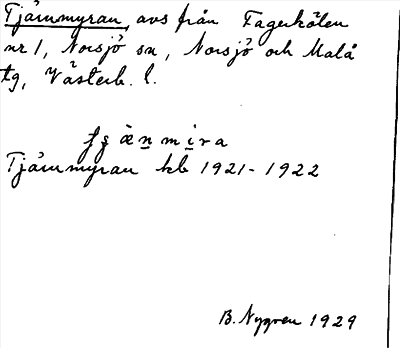 Tjärnmyran, avs från Fagerheden
nr 1, Norsjö sn, Norsjö och Malå
tg, Västerb. l.
Tjärnmyran kb 1921-1922
B. Nygren 1929